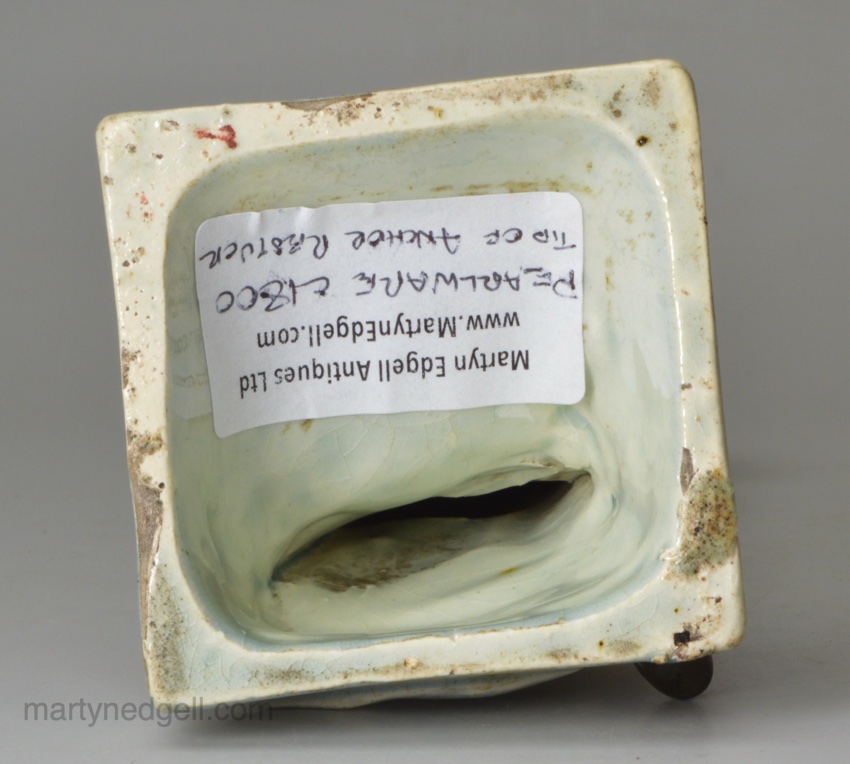 Martyn Edgell Antiques Ltd
www.MartynEdgell.com
PEARLWARE C1800
TIP OF ANCHOR RESTUCK
martynedgell.com